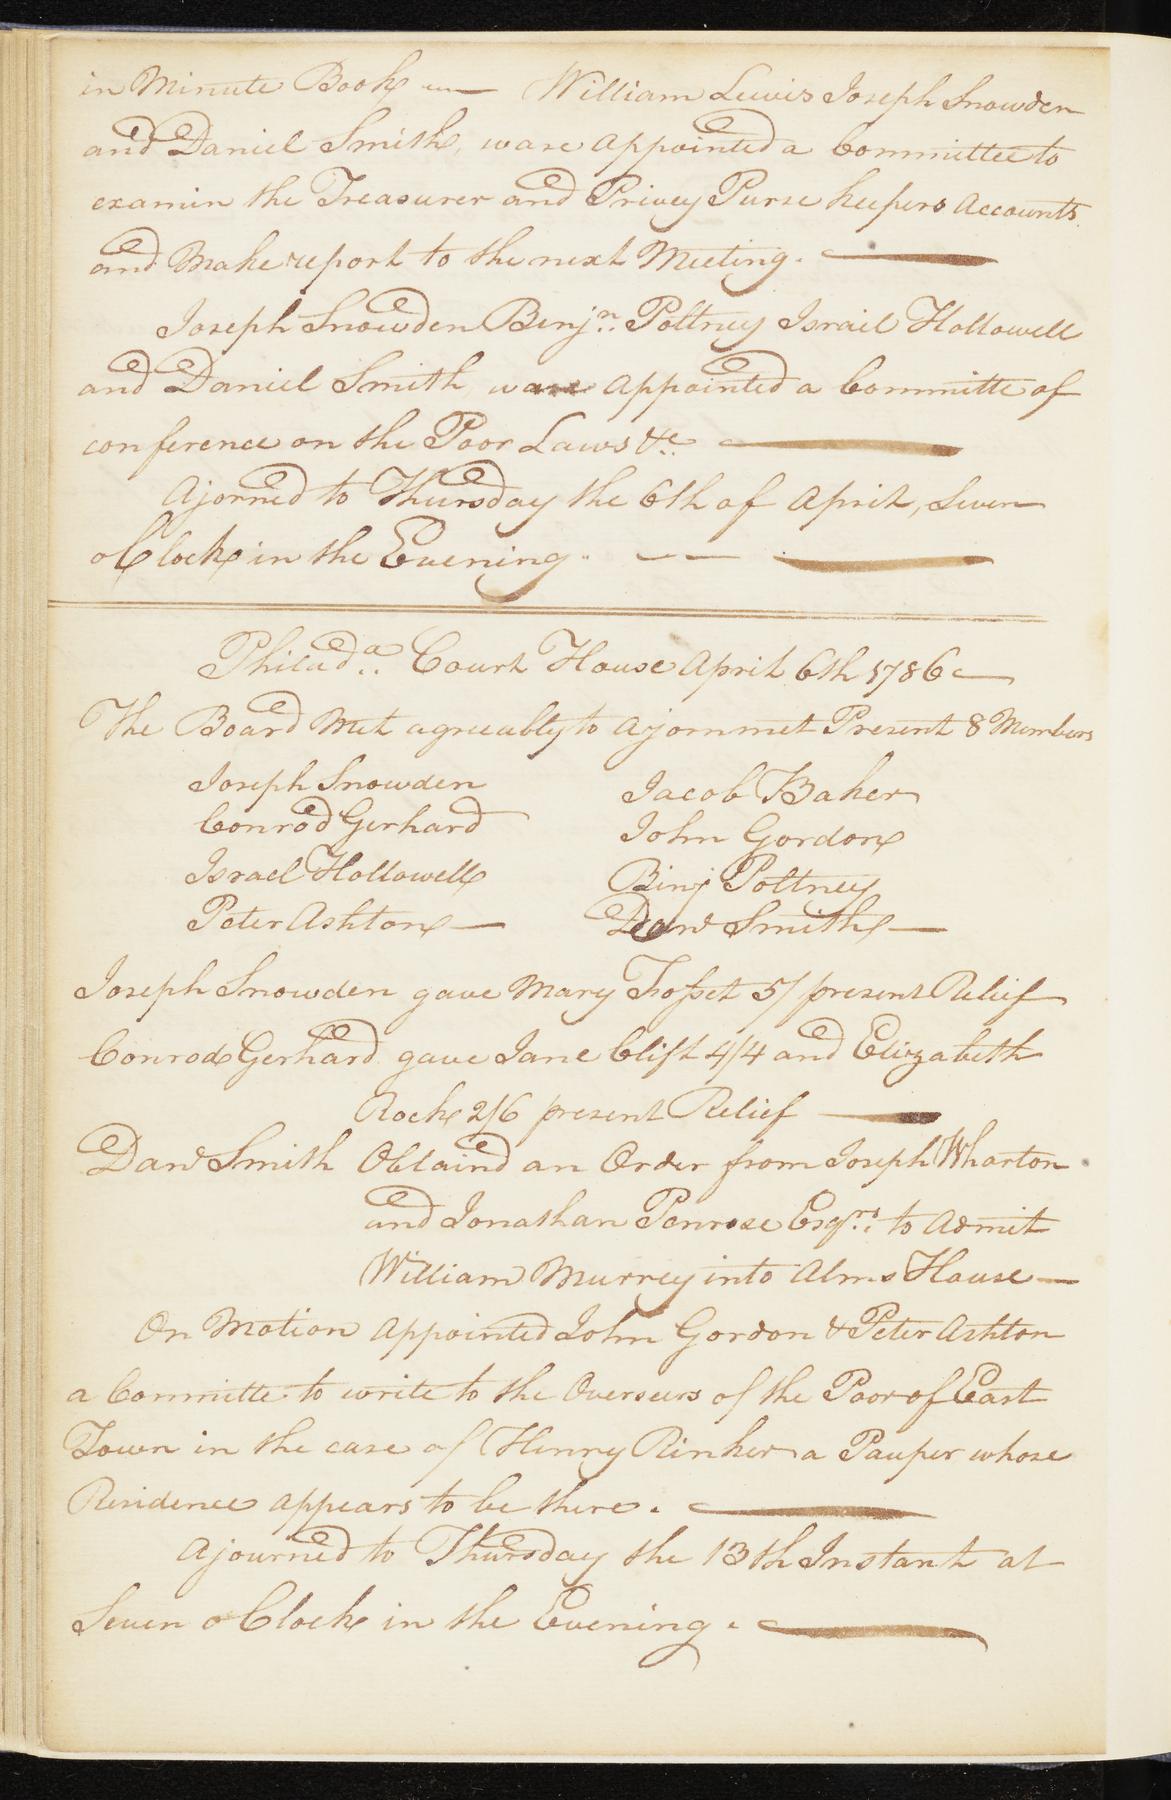 in Minute Book — William Lewis Joseph Snowden
and Daniel Smith, ware appointed a Committee to
examin the Treasurer and Privey Purse keepers Accounts
and Make report to the next Meeting. —
Joseph Snowden Benjn. Poltney Israil Hollowell
and Daniel Smith ware appointed a Committe of
conference on the Poor Laws &c. —
Ajorned to Thursday the 6th of April, Seven
oClock in the Evening. — — —
Philada. Court House April 6th 1786 —
The Board Met agreeably to Ajornmet Present 8 Members
Joseph Snowden
Conrod Gerhard
Israel Hollowell
Peter Ashton —
Jacob Baker
John Gordon
Binj Poltney
Danl Smith —
Joseph Snowden gave Mary Fosset 5/ present Relief
Conrod Gerhard gave Jane Clift 4/4 and Elizabeth
Rock 2/6 present Relief —
Danl Smith Obtaind an Order from Joseph Wharton
and Jonathan Penrose Esqrs. to Admit
William Murrey into Alms House —
On Motion appointed John Gordon & Peter Ashton
a Committe to write to the Overseers of the Poor of East
Town in the case of Henry Rinker a Pauper whose
Residence appears to be there. —
Ajourned to Thursday the 13th Instant at
Seven o Clock in the Evening. —